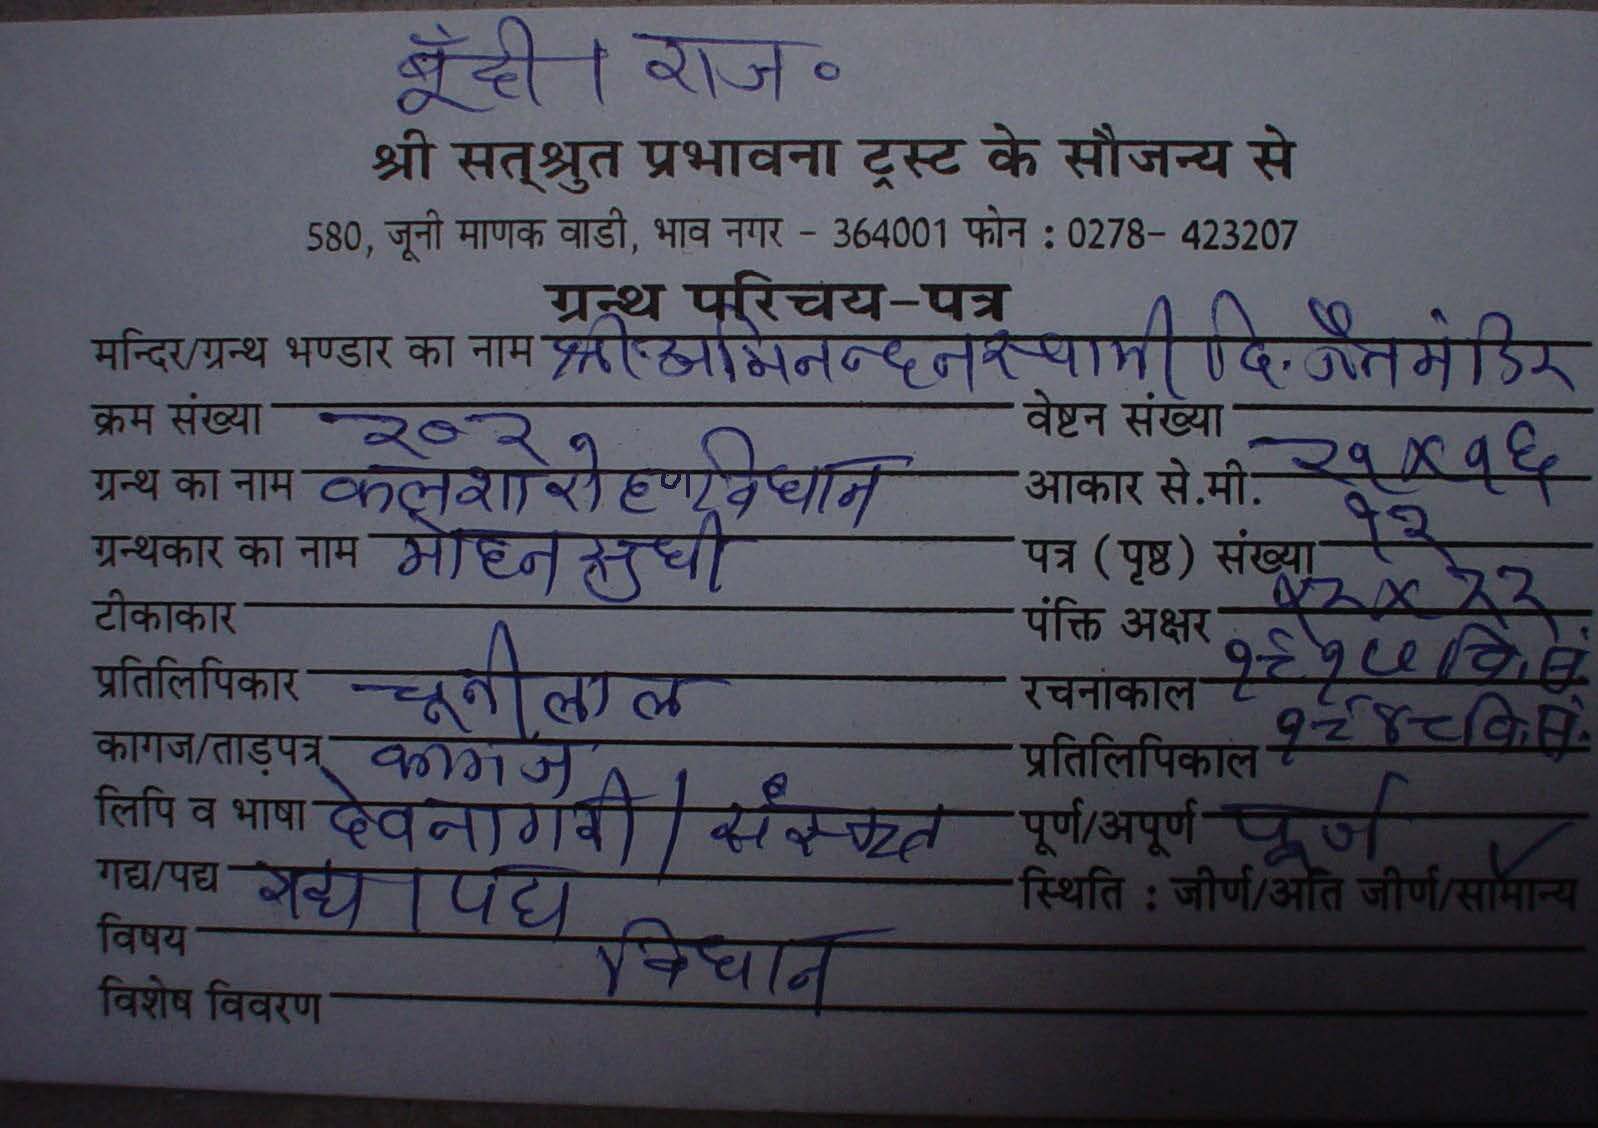 बूँदी । राज०
श्री सत्श्रुत प्रभावना ट्रस्ट के सौजन्य से
580, जूनी माणक वाडी, भाव नगर - 364001 फोन : 0278- 423207
ग्रन्थ परिचय-पत्र
मन्दिर/ग्रन्थ भण्डार का नाम श्री अभिनन्दनस्वामी दि. जैन मंदिर
क्रम संख्या २०२ वेष्टन संख्या
ग्रन्थ का नाम कलशारोहण विधान आकार से.मी. २१X१६
ग्रन्थकार का नाम मोहन सुधी पत्र ( पृष्ठ ) संख्या १२
टीकाकार पंक्ति अक्षर
प्रतिलिपिकार चूनीलाल रचनांकाल वि.सं.
कागज/ताड़पत्र कागज प्रतिलिपिकाल १९४८ वि.सं.
लिपि व भाषा देवनागरी / संस्कृत पूर्ण/अपूर्ण पूर्ण
गद्य/पद्य गद्य । पद्य स्थिति : जीर्ण/अति जीर्ण/सामान्य ✓
विषय विधान
विशेष विवरण